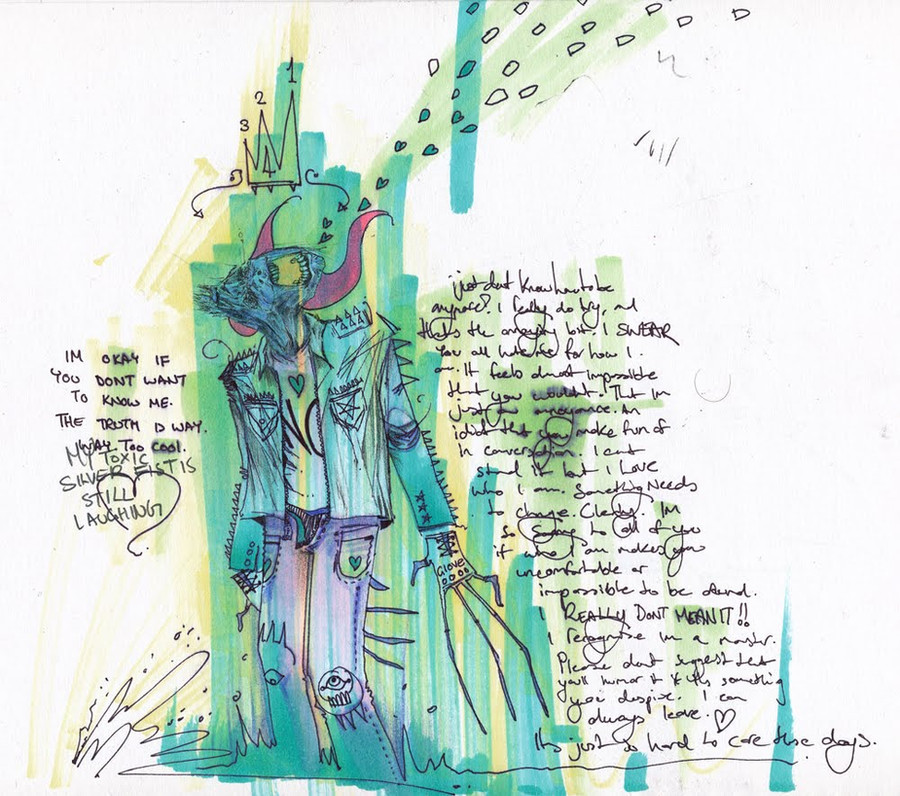 1
2
3
4
IM OKAY IF
YOU DONT WANT
TO KNOW ME.
THE TRUTH IS WAY.
WAY TOO COOL.
MY TOXIC
SILVER FIST IS
STILL
LAUGHING
Glove
i just dont know how to be
anymore? I really do try, and
thats the annoying bit. I SWEAR
you all hate me for how I
am. It feels almost impossible
that you wouldnt. That im
just an annoyance. An
idiot that you make fun of
in conversation. I cant
stand it but I LOVE
who I am. Something Needs
to change. Clearly. IM
So Sorry to all of you
if who I am makes you
uncomfortable or
impossible to be around.
I REALLY DONT MEAN IT!!
I recognise im a monster.
Please dont suggest that
youll humor it if its something
you despise. I can
always leave.
Its just so hard to care these days.